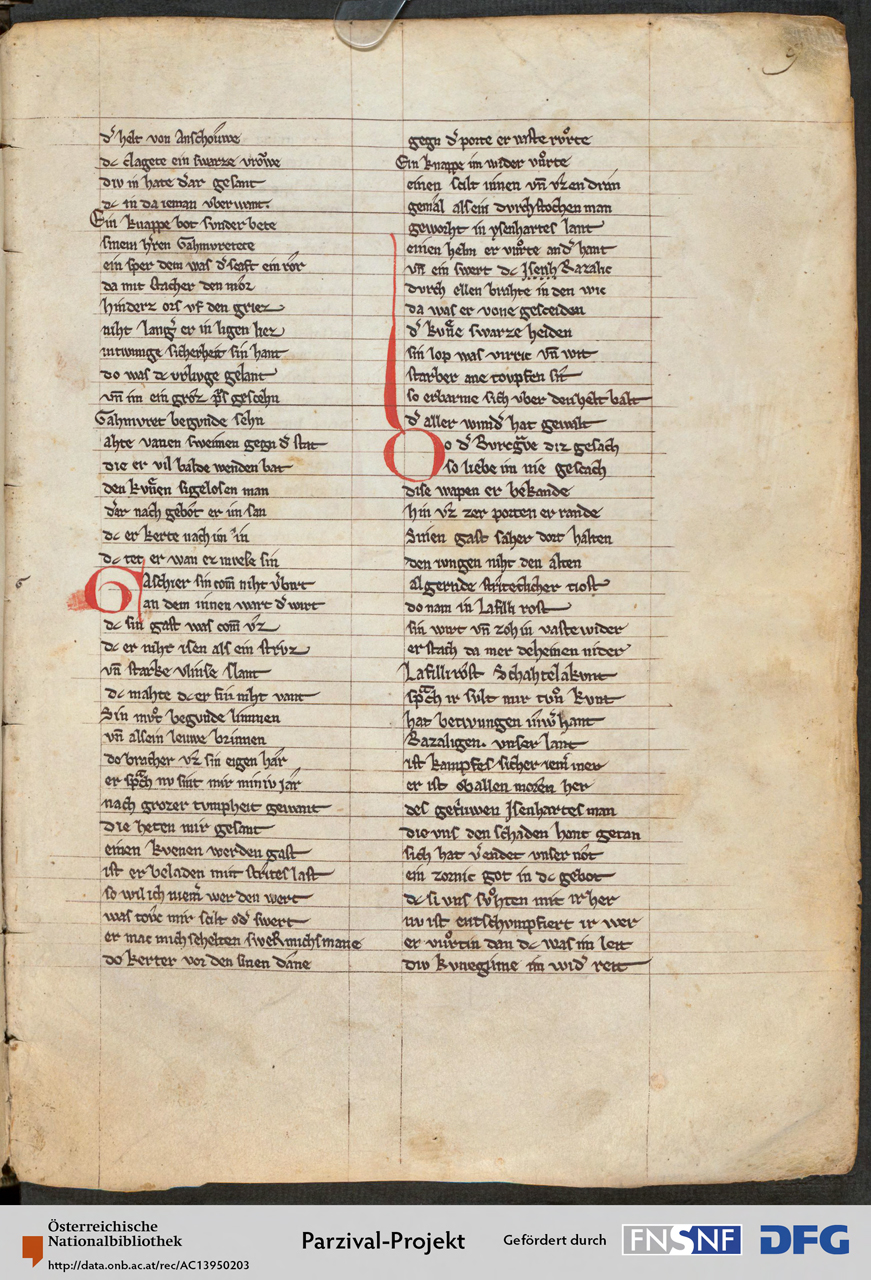 9
dˢ helt von Anschouwe
dc clagete ein swarze vroͮwe
div in hate dˢar gesant
dc in da ieman vber want.
Ein knappe bot svnder bete
sinem hˢren Gahmvretete
ein sper dem was dˢ scaft ein ror
da mit stacher den mor
hinderz ors vf den griez
niht langˢ er in ligen liez
in twunge sicherheit sin hant
do was dc vrlivge gelant
vn̄ im ein groz pˢs gescehn
Gahmvret begvnde sehn
ahte vanen sweimen gegn dˢ stat
die er vil balde wenden bat
den kvͤnen sigelosen man
dˢar nach gebot er im san
dc er kerte nach im in
dc tet er wan er mvese sin
Gaschier sin com̄ niht vˢbirt
an dem innen wart dˢ wirt
dc sin gast was com̄ vz
dc er niht isen als ein strvz
vn̄ starke vlinse slant
dc mahte dc er sin niht vant
Sin mvͦt begvnde limmen
vn̄ alsein leuwe brimmen
do bracher vz sin eigen har
er spͣch nv sint mir miniv jar
nach grozer tvmpheit gewant
Die heten mir gesant
einen kvenen werden gast
ist er beladen mit strites last
so wil ich niemˢ werden wert
was toͮc mir scilt odˢ swert
er mac mich schelten swer michs mane
do kerter vor den sinen dane
gegn dˢ porte er vaste rvͦrte
Ein knappe im wider vuͦrte
einen scilt innen vn̄ vzen dran
gemal alsein dvrchstochen man
geworht in ysenhartes lant
einen helm er vuͦrte andˢ hant
vn̄ ein swert dc Isenh Razalic
dvrch ellen brahte in den wic
da was er vone gesceiden
dˢ kvͤne swarze heiden
sin lop was virric vn̄ wit
starber ane tovpfen sit
so erbarme sich vber den helt balt
dˢ aller wundˢ hat gewalt
Do dˢ Bvrcgͣve diz gesach
so liebe im nie gescach
dise wapen er bekande
hin vz zer porten er rande
Sinen gast saher dort halten
den ivngen niht den alten
al gernde stritecliher tiost
do nam in Lafilli rost
sin wirt vn̄ zoh in vaste wider
er stach da mer deheinen nider
Lafilli rost Schahtelakunt
spͣch ir svlt mir tvͦn kvnt
hat betwungen iwˢ hant
Razaligen. vnser lant
ist kampfes sicher iemˢ mer
er ist ob allen moren her
des getˢuwen Isenhartes man
die vns den schaden hant getan
sich hat vˢendet vnser not
ein zornic got in dc gebot
dc si vns svͦhten mit ir her
nv ist entschvmpfiert ir wer
er vuͦrtin dan dc was im leit
div kvneginne im widˢ reit
Österreichische
Nationalbibliothek
http://data.onb.ac.at/rec/AC13950203
Parzival-Projekt
Gefördert durch
FNSNF
DFG